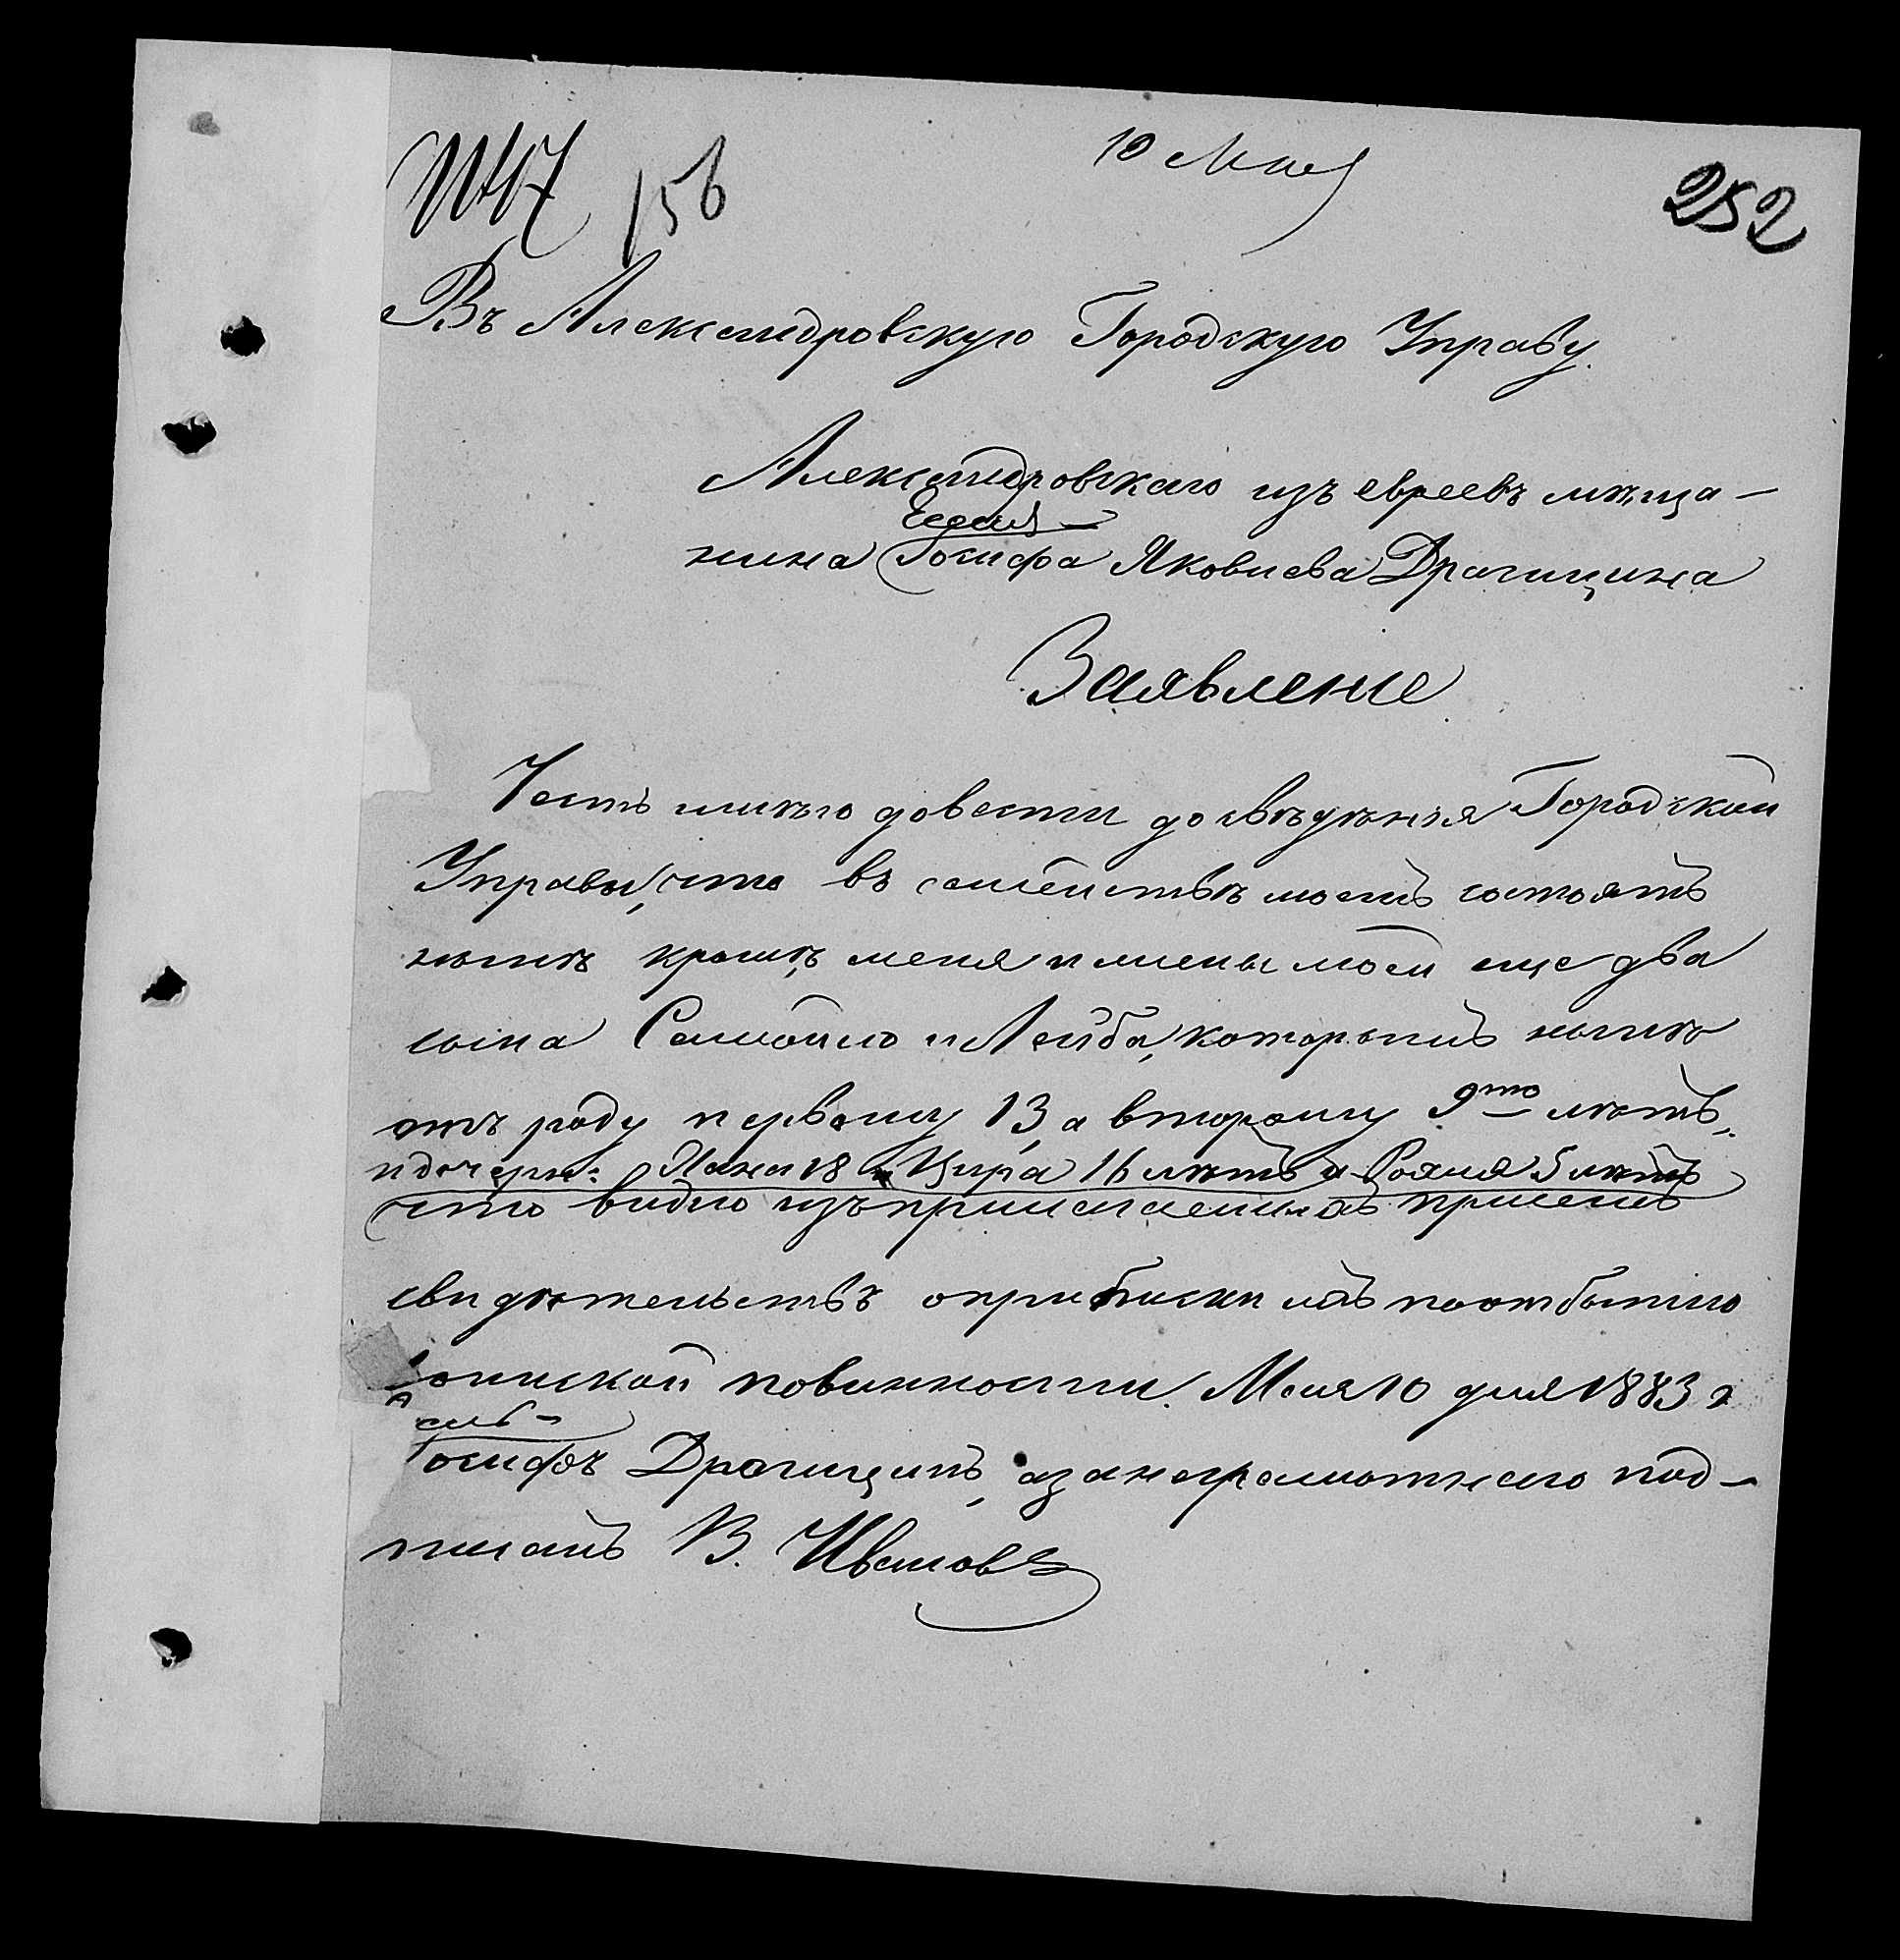 №17 156 10 Мая 252
Въ Александровскую Городскую Управу.
Александровскаго изъ евреевъ мѣща-
нина Іосифа Яковлева Драгицина
Заявленіе
Честь имѣю довести до свѣдѣнія Городской
Управы, что въ семействѣ моемъ состоятъ
нынѣ кромѣ меня и жены моей еще два
сына Самойло и Лейба, которымъ нынѣ
отъ роду первому 13, а второму 9ть лѣтъ,
и дочери: Хана 18 и Цира 16 лѣтъ и 5 лѣтъ
что видно изъ прилагаемыхъ при семъ
свидѣтельствъ о припискѣ ихъ по отбытію
воинской повинности. Мая 10 дня 1883 г
Іосифъ Драгицинъ, а за неграмотнаго под-
писалъ В. Ивановъ